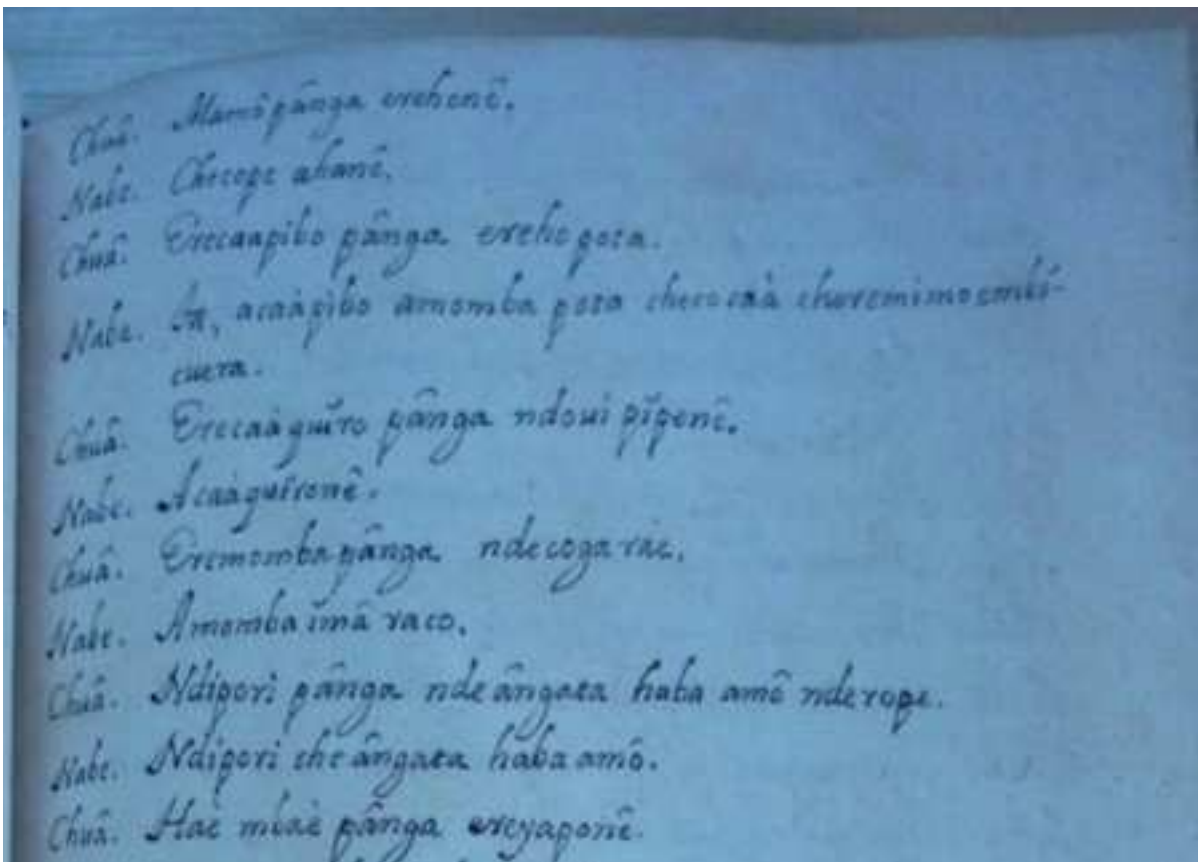 Chuâ. Mamô pânga erehenê.
Nabe. Cherope ahanê.
Chuâ. Erecaapibo pânga ereho pota.
Nabe. Ta, acaàpibo amomba pota checocaà cheremimoembi-
cuera.
Chuâ. Erecaàguĭro pânga ndoui pĭpenê.
Nabe. Acaàguĭronê.
Chuâ. Eremomba pânga ndecoga rae.
Nabe. Amomba ĭmâ raco.
Chuâ. Ndipori pânga nde ângata haba amô nderope.
Nabe. Ndipori che ângata haba amô.
Chuâ. Hae mbaè pânga ereyaponê.